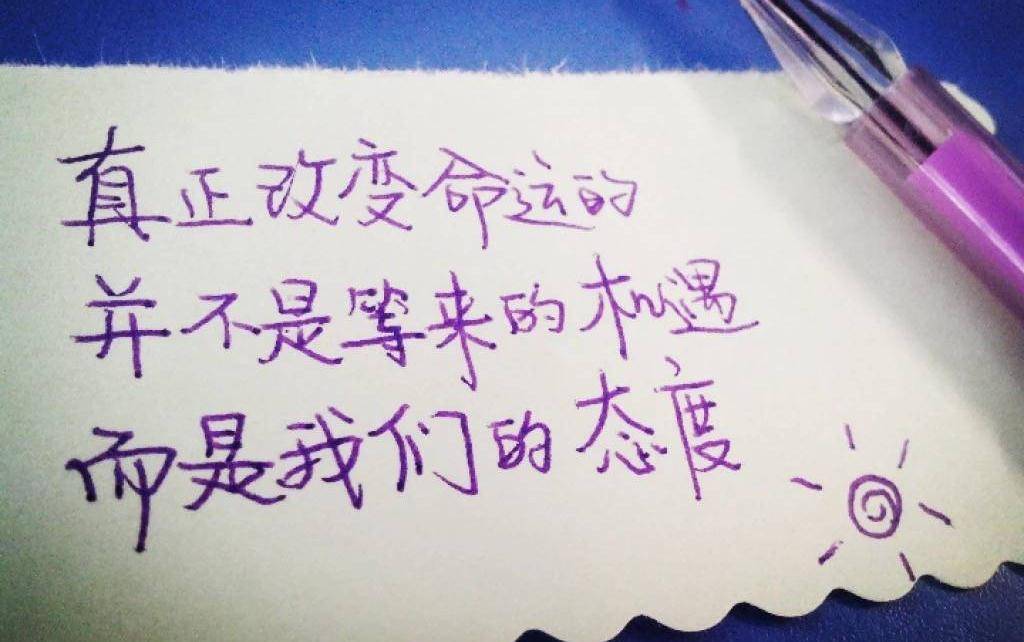 真正改变命运的
并不是等来的机遇
而是我们的态度